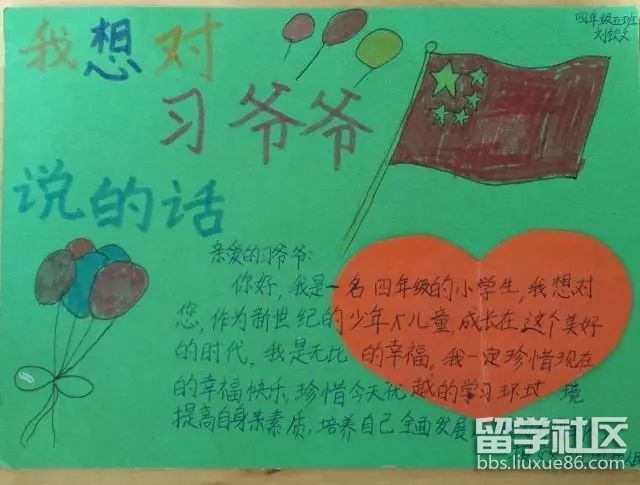 四年级五班
刘钦文
我想对
习爷爷
说的话
亲爱的习爷爷:
你好,我是一名四年级的小学生,我想对
您,作为新世纪的少年儿童,成长在这个美好
的时代,我是无比的幸福。我一定珍惜现在
的幸福快乐,珍惜今天优越的学习环境
提高自身素质,培养自己全面发展
留学社区
bbs.liuxue86.com